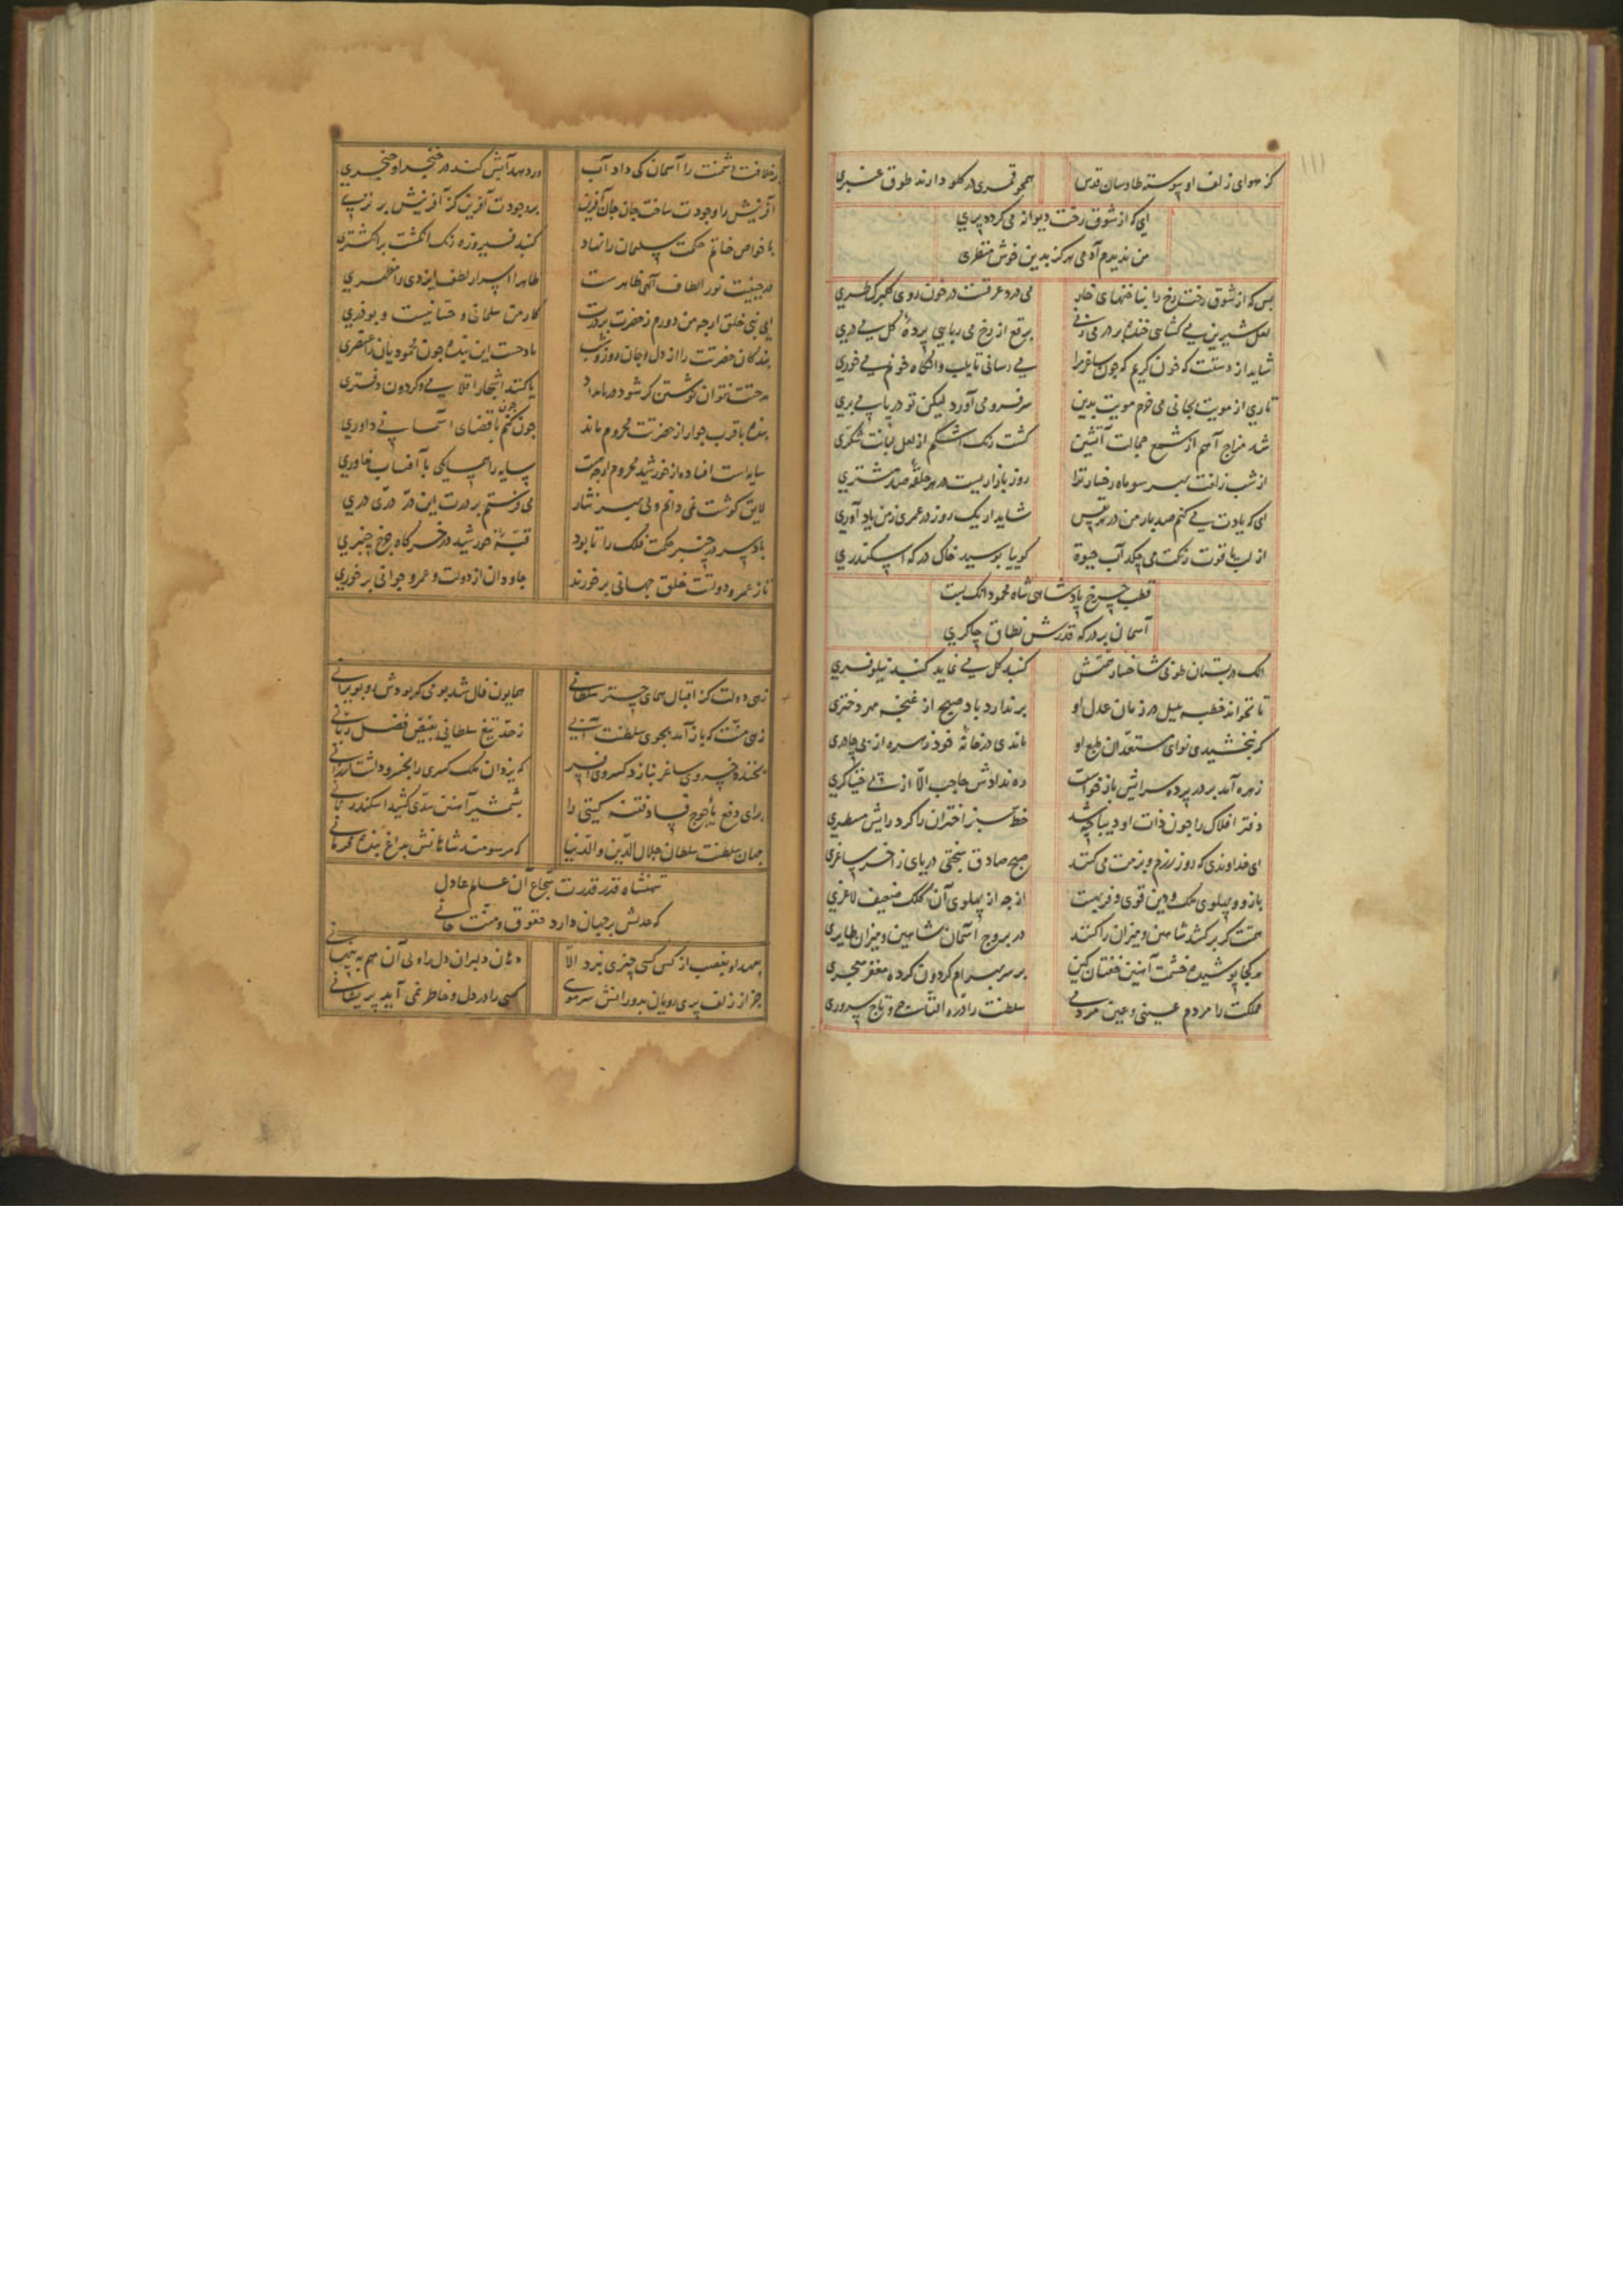 ۱۱۱
کز هوای زلف او پیوسته طاوسان قدس همچو قمری در کلو دارند طوق عنبری
ای که از شوق رخت دیوانه می کردد پری
من ندیدم آدمی هرکز بدین خوش منظری
بس که از شوق رخت رخ را بناخنهای خار می درد عرقست در خون روی کلبرک طری
لعل شیرین می کشایی خنده بر در می زنی برقع از رخ می ربایی پرده کل می دری
شاید از دستت که خون کریم که چون ساغر مرا می رسانی تا بلب وانکاه خونم می خوری
تاری از مویت بجانی می خرم مویت بدین سر فرو می آورد لیکن تو در پا می بری
شد مزاج آهم از شمع جمالت آتشین کشت رنک اشکم از لعل لبانت شکری
از شب زلفت بهر سو ماه رخسار ترا روز بازاریست در هر حلقه صد مشتری
ای که یادت می کنم صد بار من در هر نفس شاید ار یک روز در عمری ز من یاد آوری
از لب یاقوت رنکت می چکد آب حیوة کوییا بوسید خاک درکه اسکندری
قطب چرخ پادشاهی شاه محمود انک بست
آسمان بر درکه قدرش نطاق چاکری
انک در بستان طوبی شاخسار حشمتش کنبد کل می نماید کنبد نیلوفری
تا نخواند خطبه بلبل در زمان عدل او بر ندارد باد صبح از غنچه مهر دختری
کر نبخشیدی نوای مستعدان طبع او ماندی در خانه خود زهره از بی چادری
زهره آمد بر در پرده سرایش باز خواست ره ندادش حاجب الا از پی خنیاکری
دفتر افلاک را چون ذات او دیباچه شد خط سبز اختران را کرد رایش مسطری
ای خداوندی که روز رزم و بزمت می کند صبح صادق خنجری دریای زاخر ساغری
بازو و پهلوی ملک و دین قوی و فربهست از چه از پهلوی آن کلک ضعیف لاغری
همتت کر بر کشد شاهین و میزان را کند در بروج آسمان شاهین و میزان طایری
هر کجا پوشیده خشمت آهنین خفتان کین بر سر بهرام کردون کرده مغفر معجری
مملکت را مردم عینی و عین مردمی سلطنت را دره التاج و تاج سروری
بر خلافت دشمنت را آسمان کی داد آب ور دهد آبش کند در خنجر او خنجری
آفرینش را وجودت ساخت جان جان آفرین بر وجودت آفرین کز آفرینش برتری
با خواص خاتم حکمت سلیمان را نهاد کنبد فیروزه رنک انکشت بر انکشتری
در جبینت نور الطاف الهی ظاهرست ظاهرا اسرار لطف ایزدی را مظهری
ای نبی خلق ار چه من دورم ز حضرت بر درت کار من سلمانی و حسانیست و بوذری
بندکان حضرتت را از دل و جان روز و شب مادحست این بنده چون محمودیان را عنصری
مدحتت نتوان نوشتن کر شود دریا مداد یا کند اشجار اقلامی و کردون دفتری
بنده با قرب جوار از حضرتت محروم ماند چون کنم با قضای آسمانی داوری
سایه است افتاده از خورشید محروم ار چه هست سایه را همسایکی با آفتاب خاوری
لایق کوشت نمی دانم ولی بهر نثار می فرستم بر درت این در دری دری
باد سر در چنبر حکمت فلک را تا بود قبه خورشید در خرکاه چرخ چنبری
تا ز عمر و دولتت خلق جهانی بر خورند جاودان از دولت و عمر و جوانی بر خوری
زهی دولت کز اقبال همای چتر سلطانی همایون فال شد بومی که بودش رو بویرانی
زهی منت که باز آمد بجوی سلطنت آبی ز حد تیغ سلطانی بفیض فضل ربانی
بخنده خسروی ساغر بنازد کسروی افسر که یزدان ملک کسری را بخسرو داشت ارزانی
برای دفع یأجوج فساد و فتنه کیتی را بشمشیر آهنین سدی کشید اسکندر ثانی
جهان سلطنت سلطان جلال الدین و الدنیا که مرسومند شاهانش بداغ بنده فرمانی
شهنشاه قدر قدرت شجاع آن عالم عادل
که عدلش بر جهان دارد حقوق و منت جانی
بعهد او بغصب از کس کسی چیزی نبرد الا دهان دلبران دل را ولی آن هم به پنهانی
بجز از زلف پری رویان بدورانش سر مویی کسی را در دل و خاطر نمی آید پریشانی